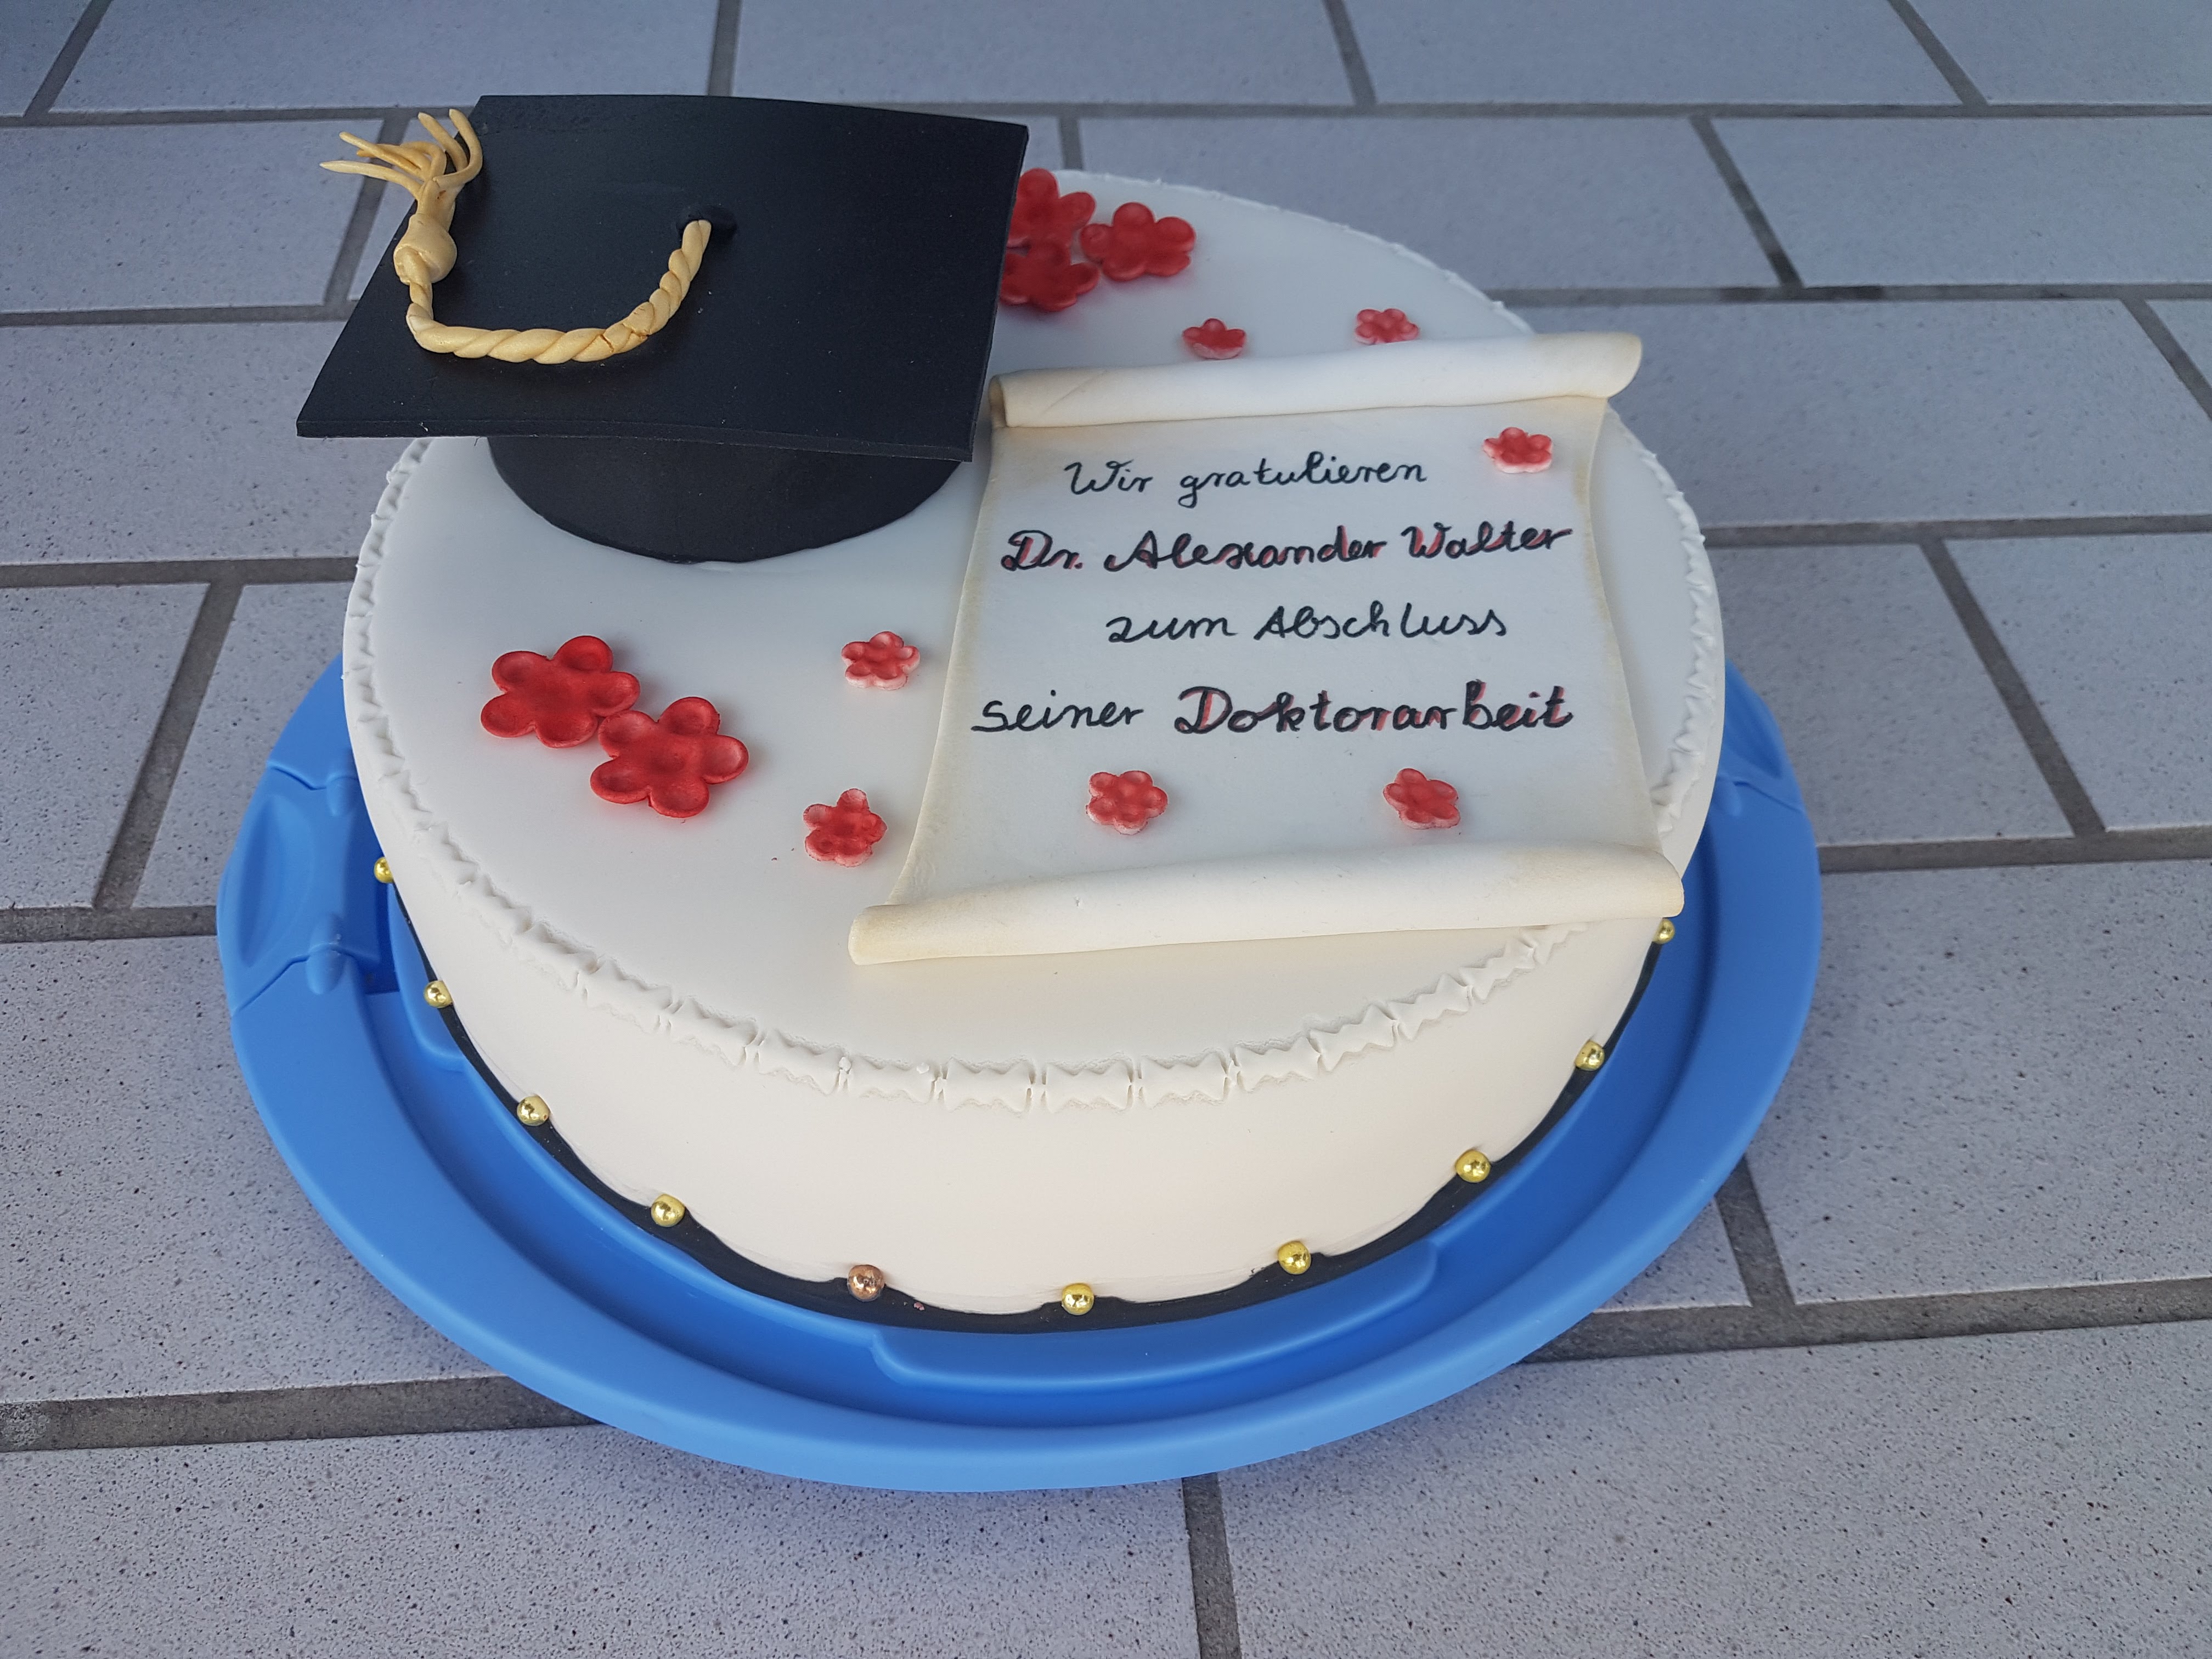 Wir gratulieren
Dr. Alexander Walter
zum Abschluss
seiner Doktorarbeit